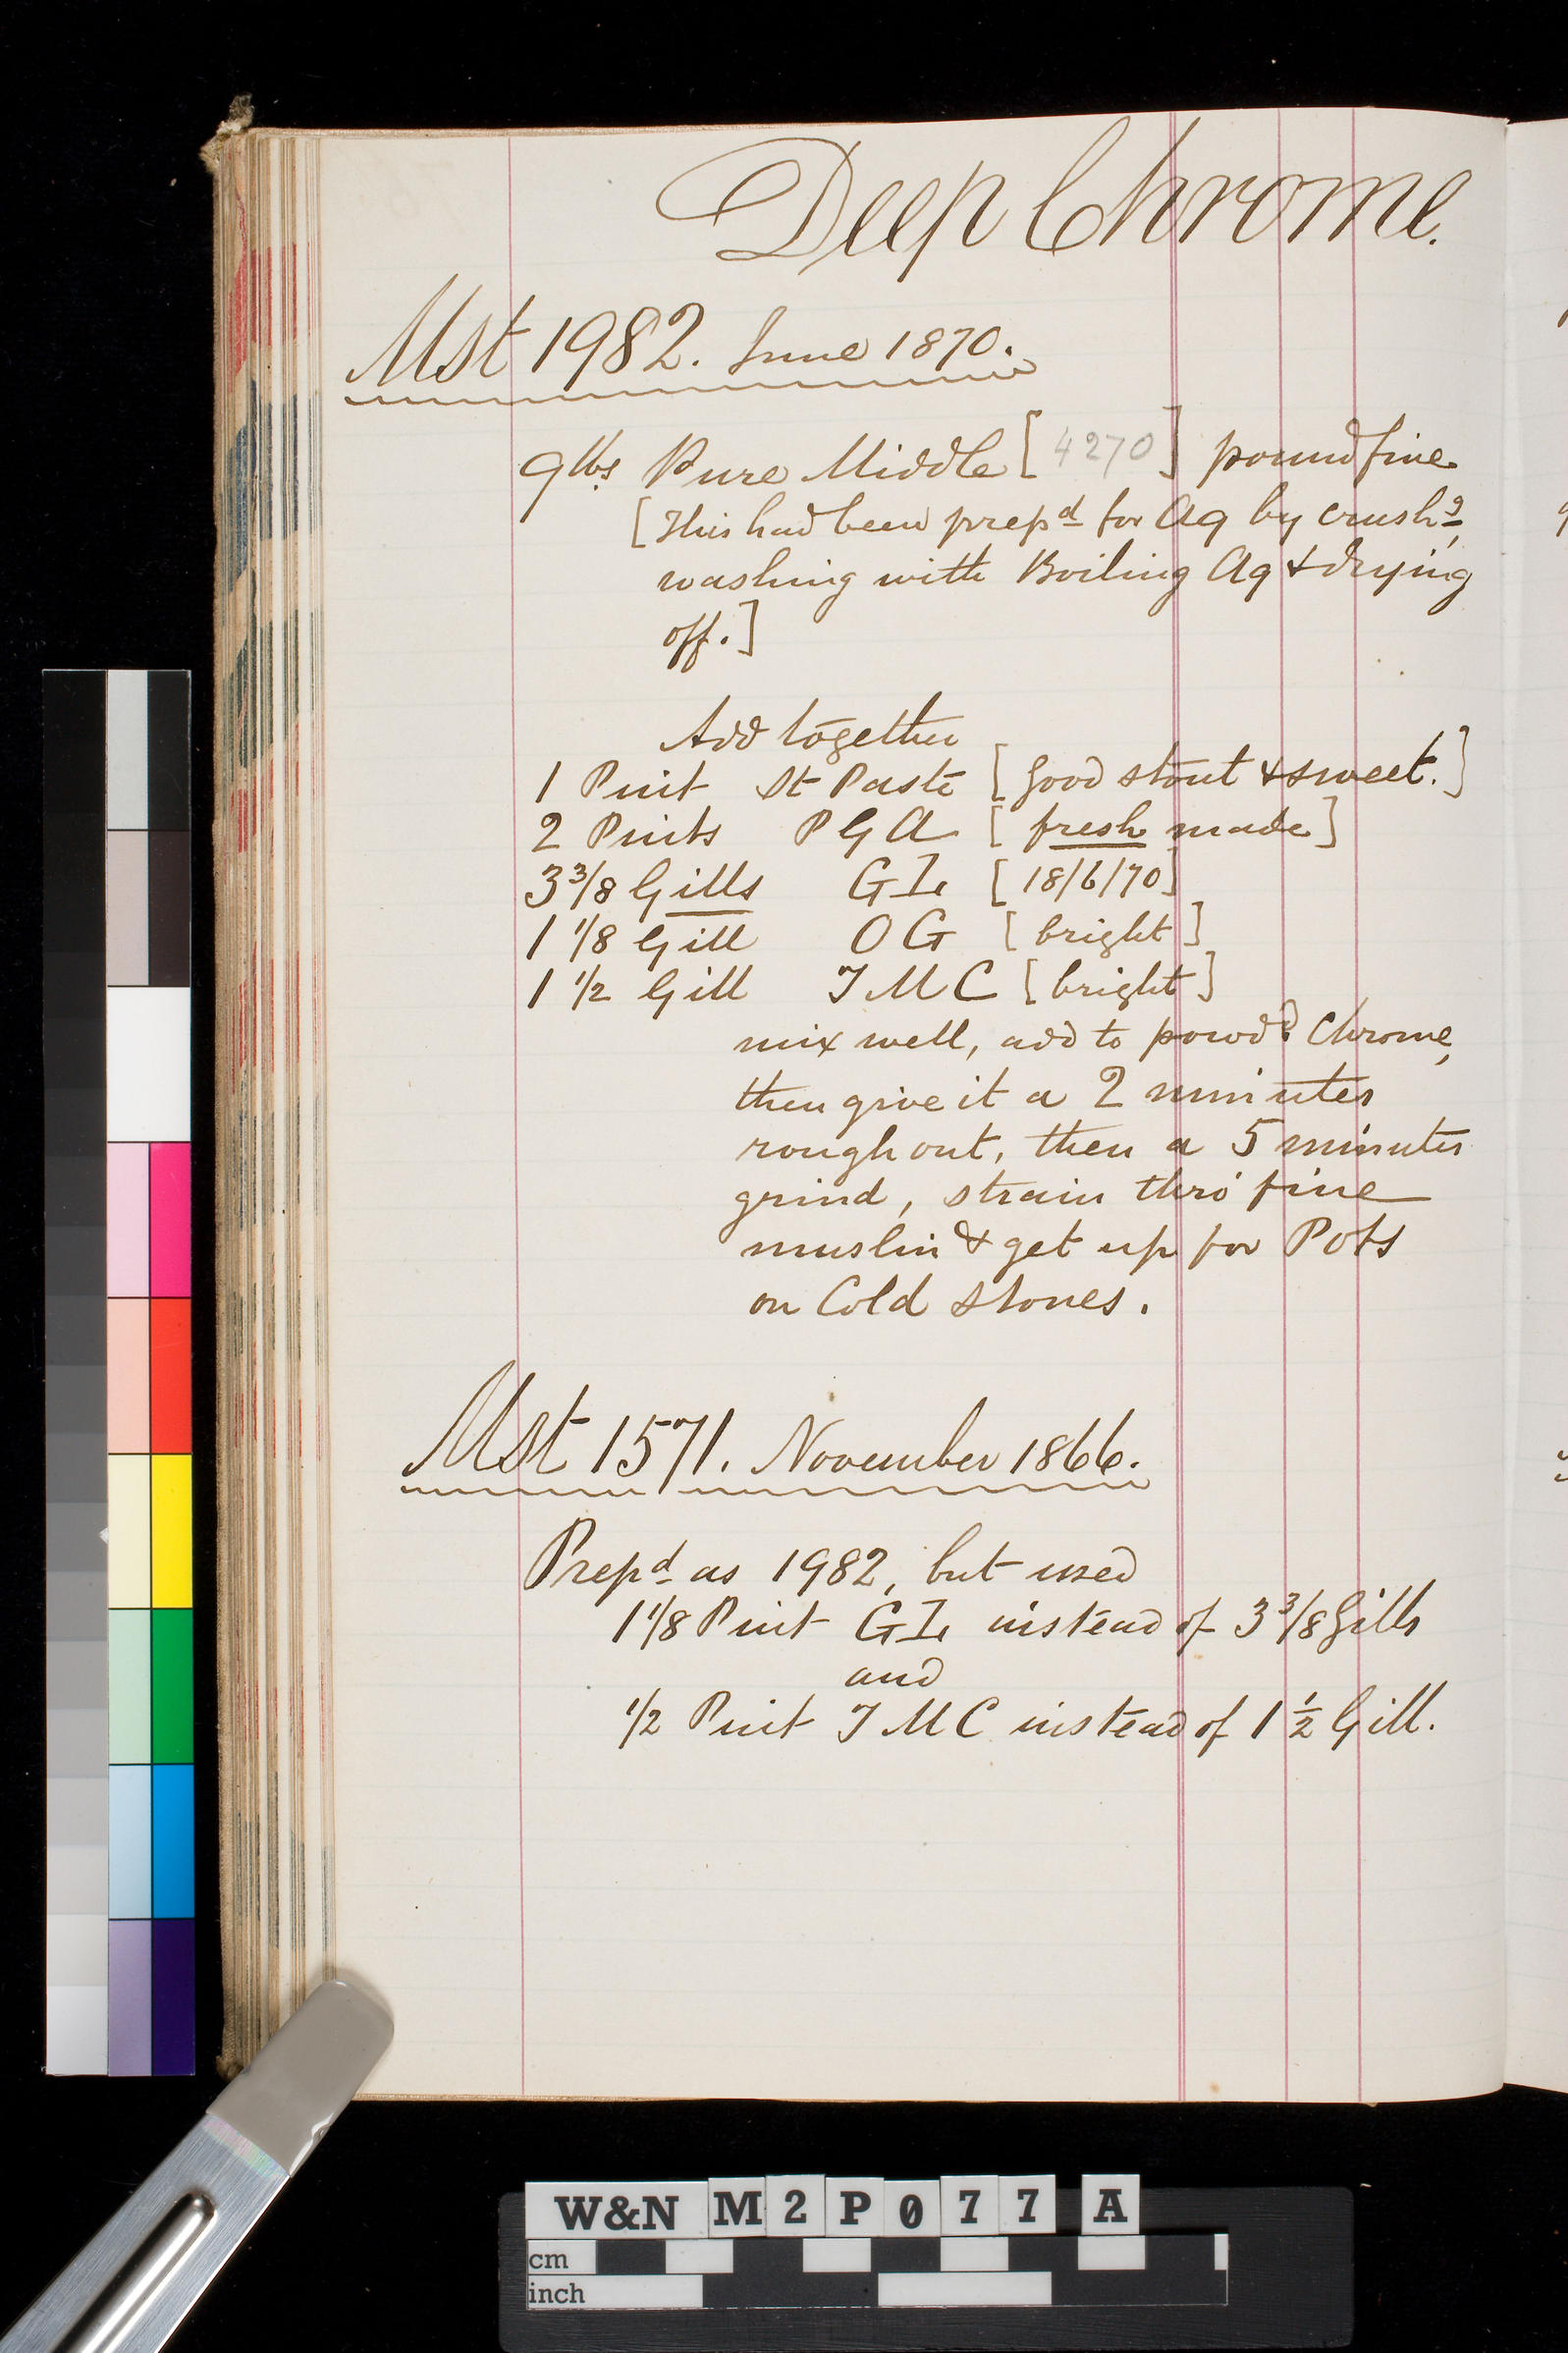 Deep Chrome.
Mst 1982. June 1870.
9 lbs Pure Middle [4270] pound fine
[This had been prepd for Aq by crushg,
washing with Boiling Aq & drying
off.]
Add together
1 Pint St Paste [good stout & sweet.]
2 Pints P G A [fresh made]
3 3/8 Gills GL [18/6/70]
1 1/8 Gill OG [bright]
1 1/2 Gill T M C [bright]
mix well, add to powdd Chrome,
then give it a 2 minutes
rough out, then a 5 minutes
grind, strain thro' fine
muslin & get up for Pots
on Cold stones.
Mst 1571. November 1866.
Prepd as 1982, but used
1 1/8 Pint GL instead of 3 3/8 Gills
and
1/2 Pint T M C instead of 1 1/2 Gill.
W&N M2P077 A
cm
inch